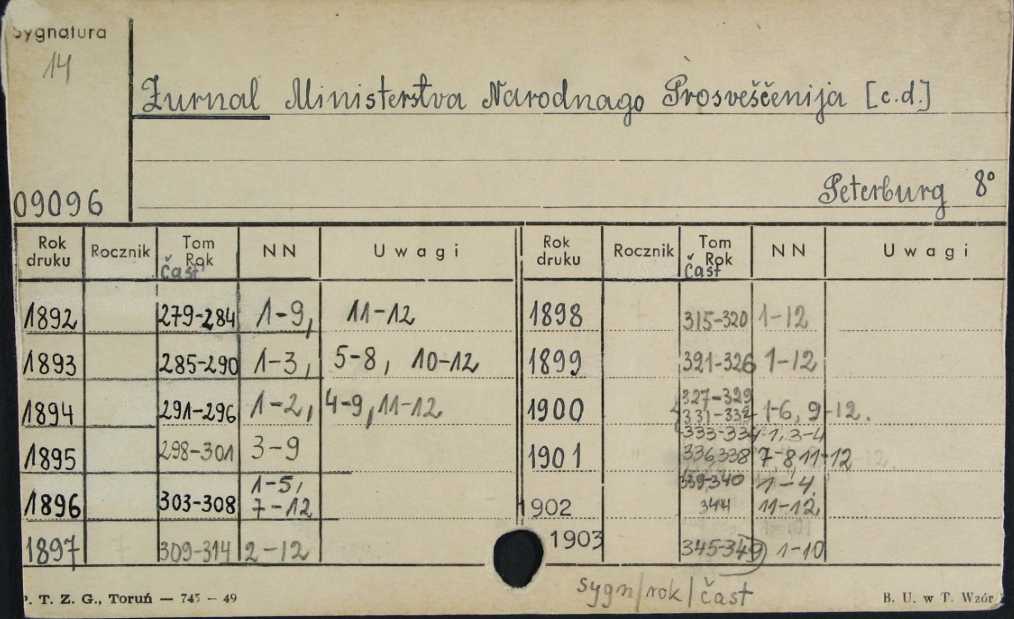 Sygnatura
14
Żurnal Ministerstva Narodnago Prosveščenija [c.d.]
09096
Peterburg 8°
Rok druku Rocznik Tom Rok Čast' NN Uwagi Rok druku Rocznik Tom Rok Čast' NN Uwagi
1892 279-284 1-9, 11-12 1898 315-320 1-12
1893 285-290 1-3, 5-8, 10-12 1899 321-326 1-12
1894 291-296 1-2, 4-9, 11-12 1900 327-329 331-332 1-6, 9-12.
1895 298-301 3-9 1901 333-334 336,338 1, 3-4 7-8 11-12
1896 303-308 1-5, 7-12 1902 339-340 344 1-4, 11-12,
1897 309-314 2-12 1903 345-349 1-10
sygn/rok/čast
P. T. Z. G., Toruń — 745 — 49
B. U. w T. Wzór